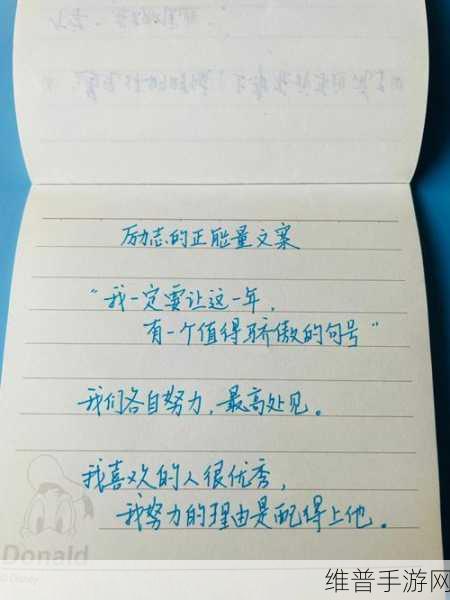 励志的正能量文案
“我一定要让这一年,
有一个值得骄傲的句号”
我们各自努力,最高处见。
我喜欢的人很优秀,
我努力的理由是配得上他。
Donald
© Disney
维普手游网